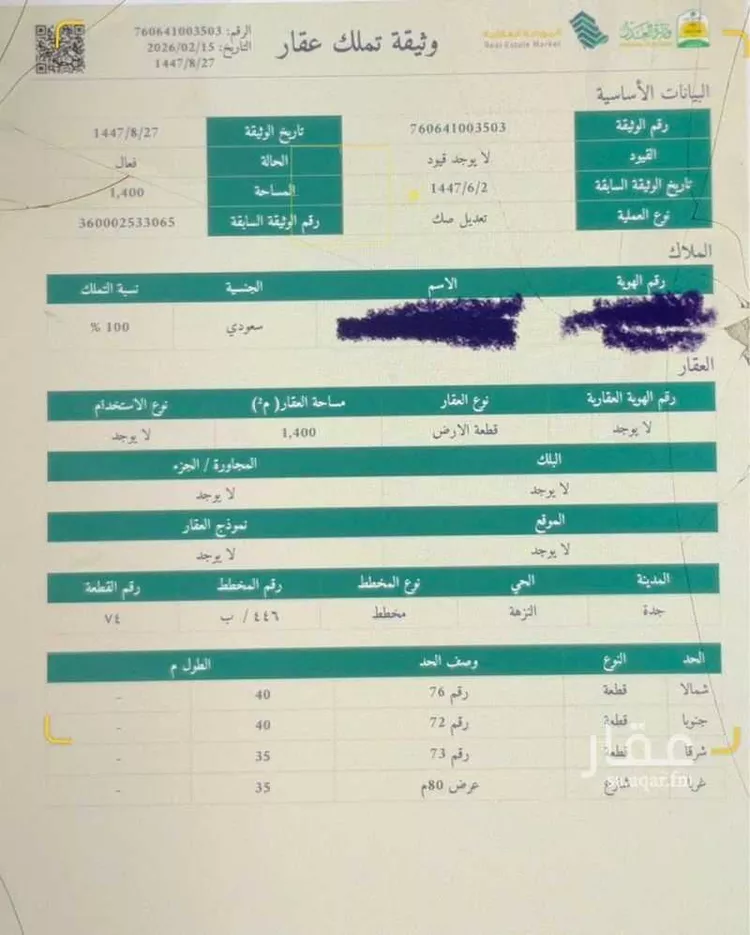 وزارة العدل
البورصة العقارية
Real Estate Market
وثيقة تملك عقار
الرقم: 760641003503
التاريخ: 2026/02/15
1447/8/27
البيانات الأساسية
رقم الوثيقة 760641003503 تاريخ الوثيقة 1447/8/27
القيود لا يوجد قيود الحالة فعال
تاريخ الوثيقة السابقة 1447/6/2 المساحة 1,400
نوع العملية تعديل صك رقم الوثيقة السابقة 360002533065
الملاك
رقم الهوية الاسم الجنسية نسبة التملك
سعودي 100 %
العقار
رقم الهوية العقارية نوع العقار مساحة العقار( م²) نوع الاستخدام
لا يوجد قطعة الارض 1,400 لا يوجد
البلك المجاورة / الجزء
لا يوجد لا يوجد
الموقع نموذج العقار
لا يوجد لا يوجد
المدينة الحي نوع المخطط رقم المخطط رقم القطعة
جدة النزهة مخطط ٤٤٦ / ب ٧٤
الحد النوع وصف الحد الطول م
شمالا قطعة رقم 76 40 -
جنوبا قطعة رقم 72 40 -
شرقا قطعة رقم 73 35 -
غربا شارع عرض 80م 35 -
عقار
sa.aqar.fm